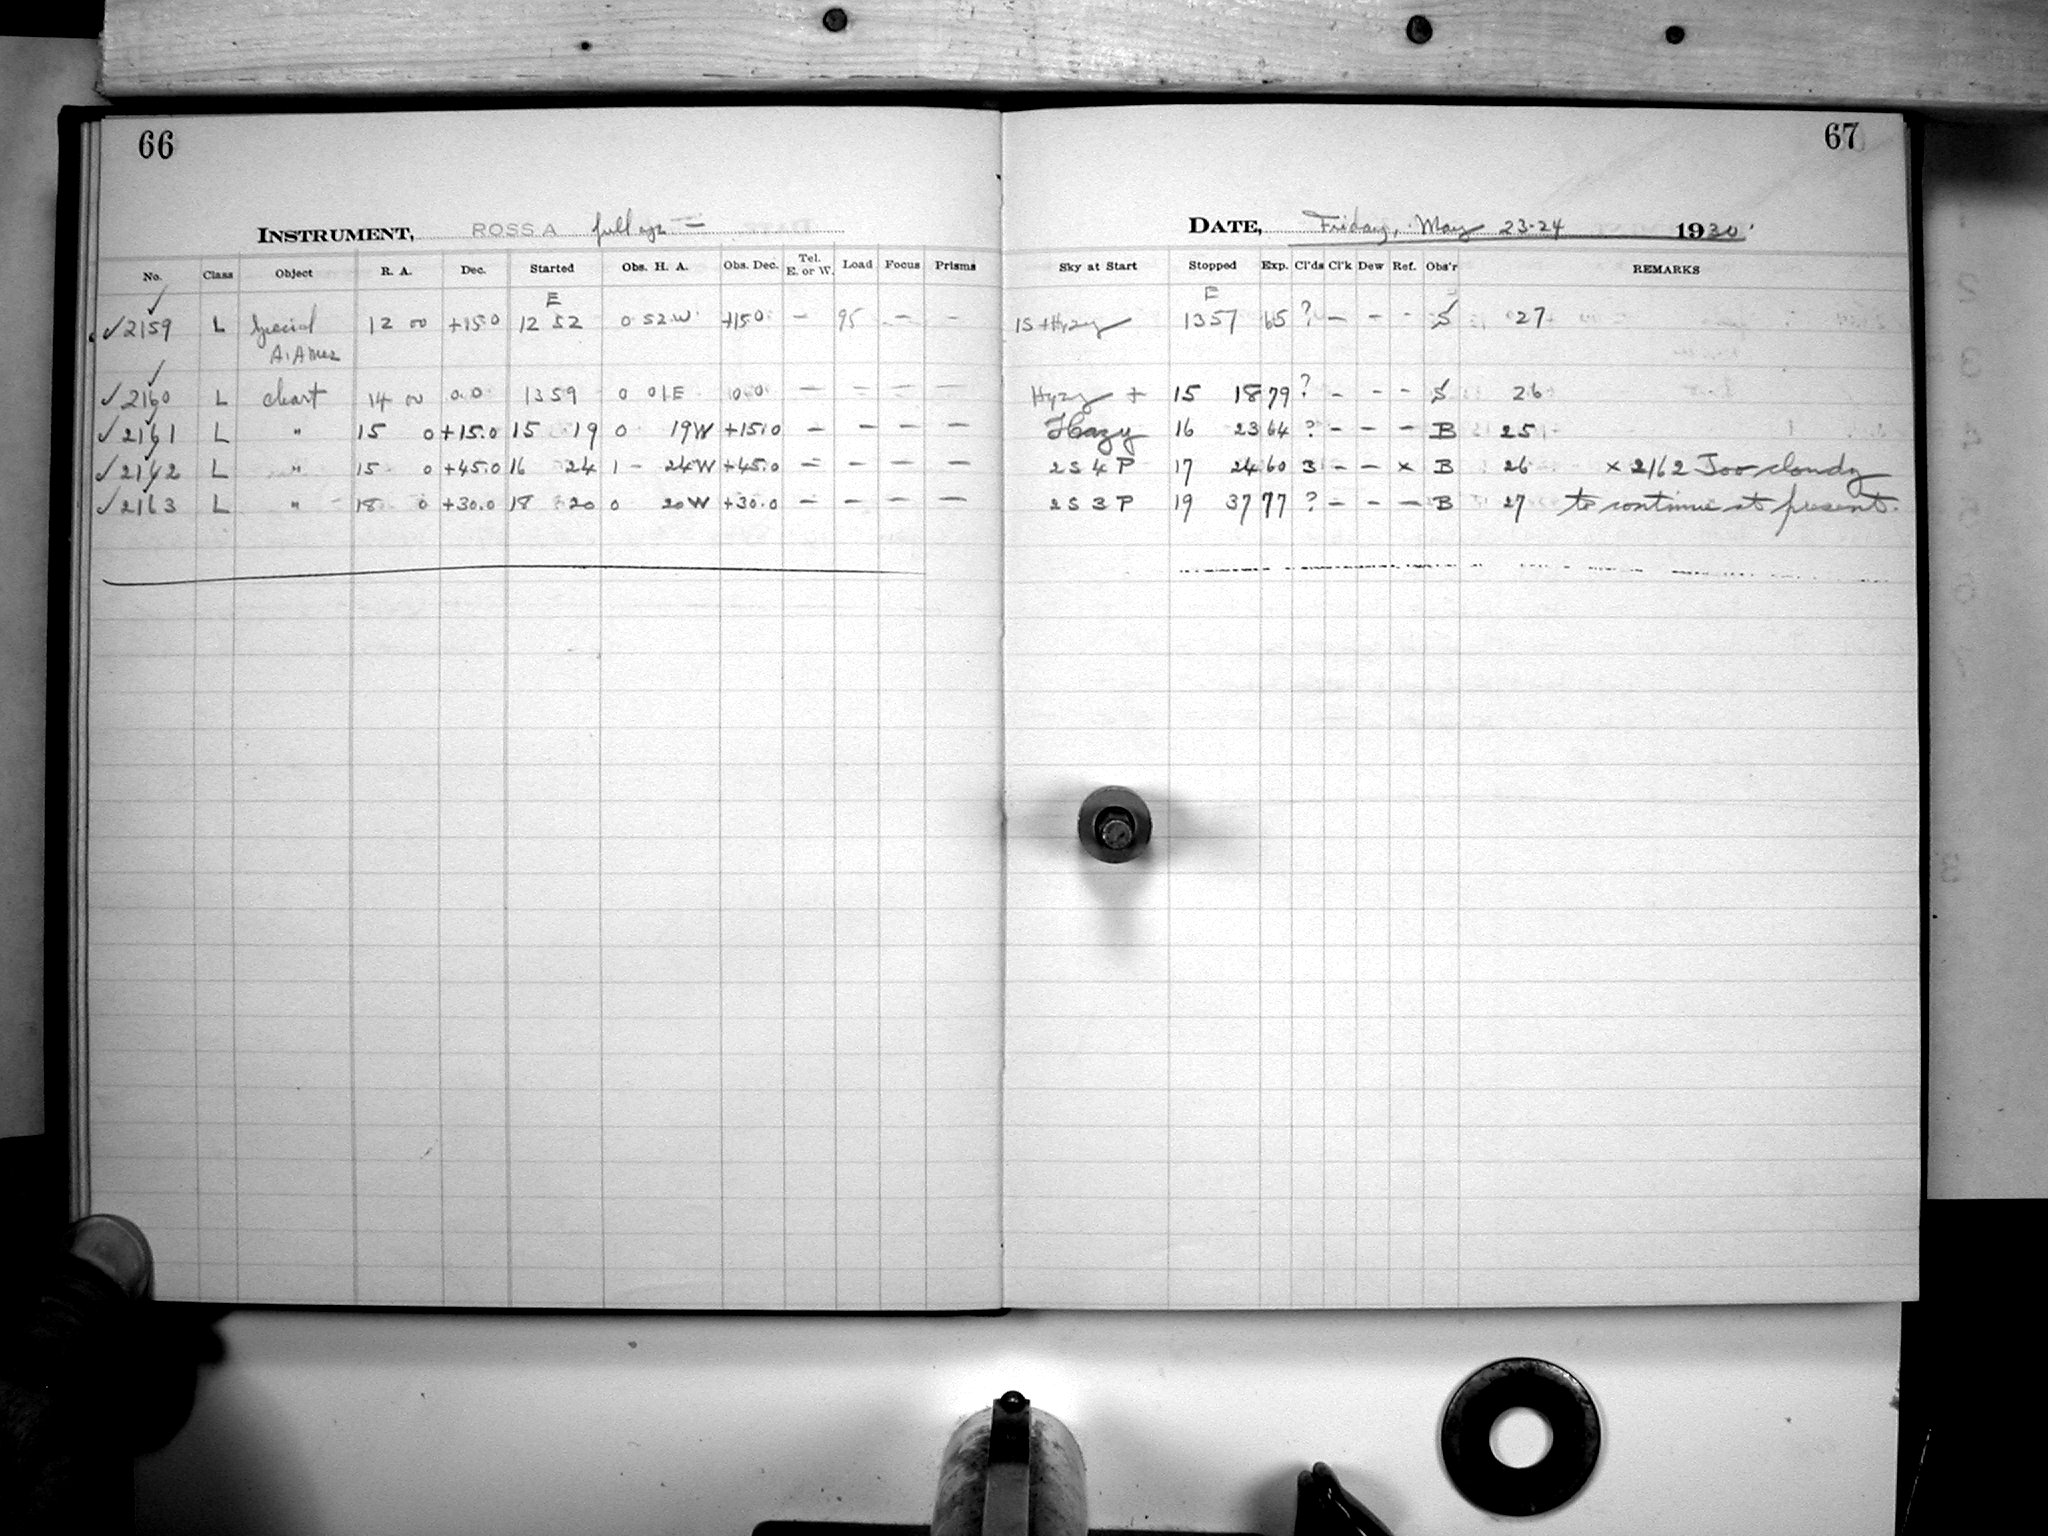 66
67
INSTRUMENT, ROSS A full ap. =
DATE, Friday, May 23-24 1930.
No. Class Object R. A. Dec. Started Obs. H. A. Obs. Dec. Tel. E. or W. Load Focus Prisms Sky at Start Stopped Exp. Cl'ds Cl'k Dew Ref. Obs'r REMARKS
E E
✓2159 L Special 12 00 +15.0 12 52 0 52 W +15.0 – 95 – – 1S+Hyzy 13 57 65 ? – – - S 27
A. Ames
✓2160 L chart 14 00 0.0 13 59 0 01 E 0.0 – – – – Hyzy + 15 18 79 ? – - - S 26
✓2161 L " 15 0 +15.0 15 19 0 19 W +15.0 – – – – Hazy 16 23 64 ? – – – B 25
✓2162 L " 15 0 +45.0 16 24 1 – 24 W +45.0 – – – – 2 S 4 P 17 24 60 3 – – x B 26 x 2162 Too cloudy
✓2163 L " 18 0 +30.0 18 20 0 20 W +30.0 – – – – 2 S 3 P 19 37 77 ? – – – B 27 to continue at present.